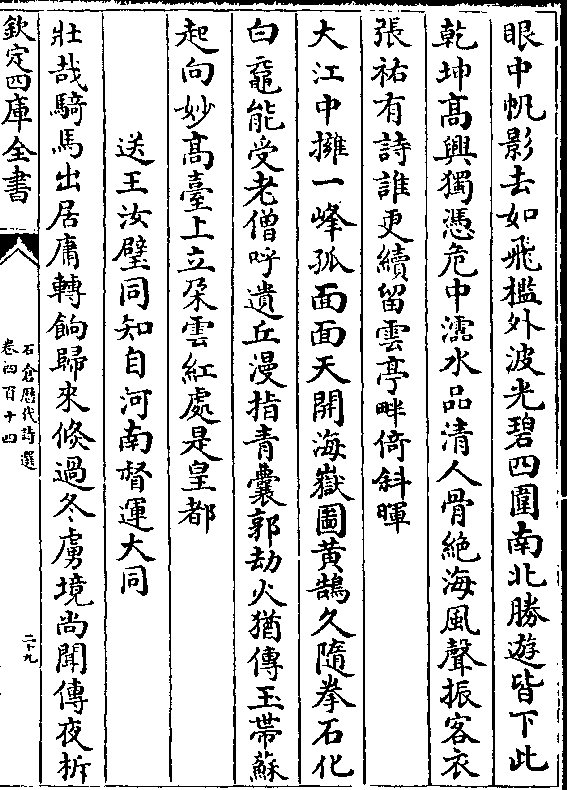 眼中帆影去如飛檻外波光碧四圍南北勝遊皆下此
乾坤高興獨憑危中濡水品清人骨絶海風聲振客衣
張祐有詩誰更續留雲亭畔倚斜暉
大江中擁一峰孤面面天開海嶽圖黄鵠久隨拳石化
白黿能受老僧呼遺丘漫指青囊郭劫火猶傳玉帶蘇
起向妙高臺上立朶雲紅處是皇都
送王汝璧同知自河南督運大同
壯哉騎馬出居庸轉餉歸來倐過冬虜境尚聞傳夜柝
欽定四庫全書
石倉歴代詩選
卷四百十四
二十九